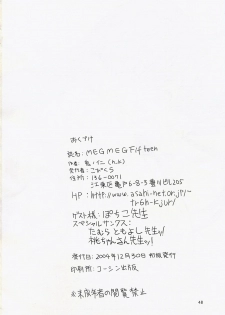 おくづけ
誌名: MEGMEGF/4teen
発行者: こげめくら
住所: 136-0071
江東区亀戸6-8-3香川ビル205
HP: http://www.asahi-net.or.jp/
tr6h-kjur/
ゲスト様: ぽち子先生
スペシャルサンクス:
たむらともよし先生ッ!
桃ちゃんさん先生ッ!
発行日: 2004年12月30日 初版発行
印刷所: コーシン出版
※未成年者の閲覧禁止
48